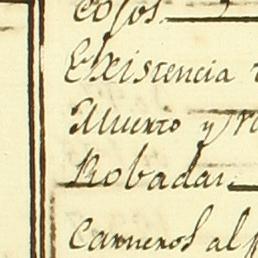 Cojos.
Existencia
Muerto y
Robadas
Carneros al